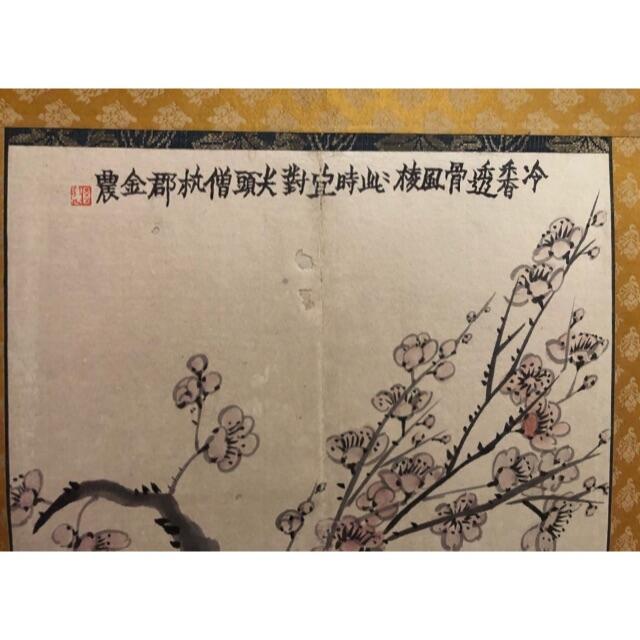 冷香透骨風棱〻此時宜對尖頭僧杭郡金農